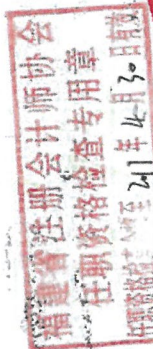 福建省注册会计师协会
任职资格检查专用章
2011年4月30日前